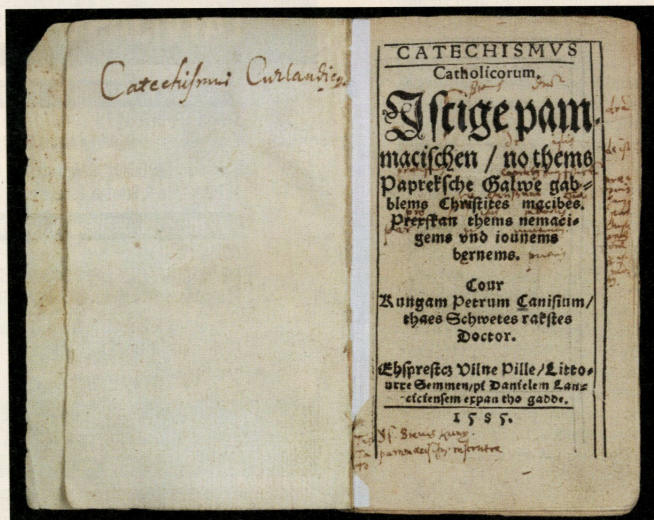 Catechismi Curlandic
CATECHISMVS
Catholicorum.
Istige pam-
macischen / no thems
Papreksche Galwe gab-
blems Christites macibes.
Prexskan thems nemaci-
gems vnd iounems
bernems.
Cour
Kungam Petrum Canisium/
thaes Schwetes rakstes
Doctor.
Ehsprestcz Vilne Pille/Litto-
urre Semmen/pi Danielem Lan-
ciciensem expan tho gadde.
1585.